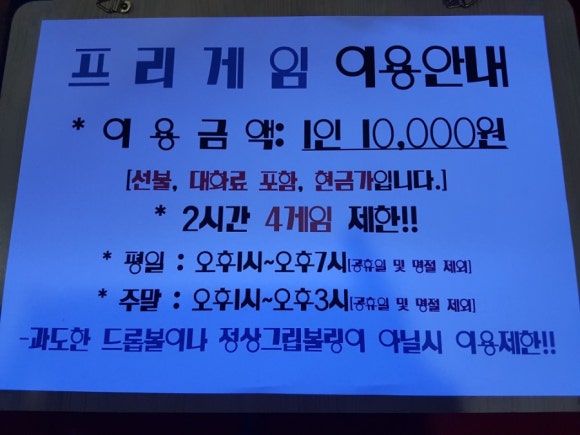 프리게임 이용안내
* 이용금액: 1인 10,000원
[선불, 대화료 포함, 현금가입니다.]
* 2시간 4게임 제한!!
* 평일 : 오후1시~오후7시[공휴일 및 명절 제외]
* 주말 : 오후1시~오후3시[공휴일 및 명절 제외]
-과도한 드롭볼이나 정상그립볼링이 아닐시 이용제한!!